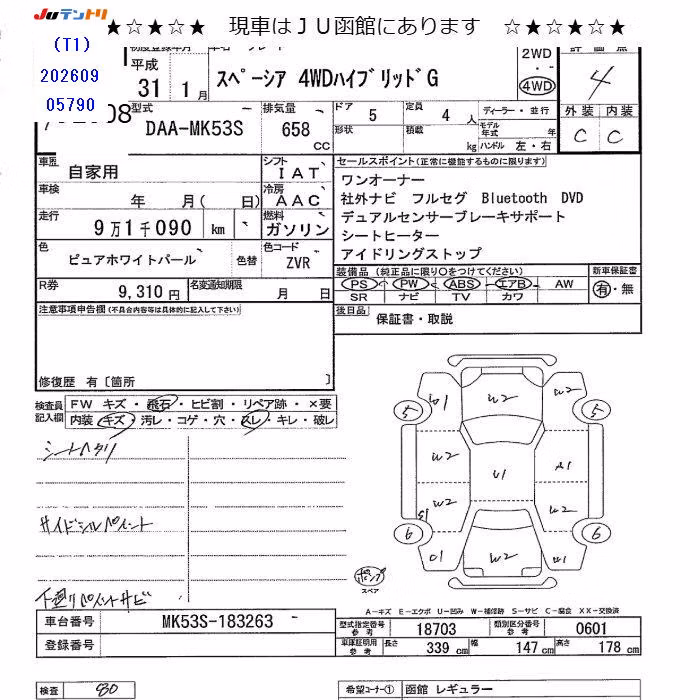 Juテントリ
★☆★☆★ 現車はＪＵ函館にあります ☆★☆★☆
(T1)
202609
05790
平成
31 1月
スペーシア 4WDハイブリッドG
2WD
・
4WD
評価点
4
型式
DAA-MK53S
排気量
658 CC
ドア 5
定員 4人
ディーラー・並行
形状
積載 kg
モデル年式 年
ハンドル 左・右
外装 内装
C C
車歴 自家用
シフト IAT
車検 年 月( 日)
冷房 AAC
走行 9万1千090 km
燃料 ガソリン
色 ピュアホワイトパール 色替
色コード ZVR
R券 9,310円
名変通知期限 月 日
セールスポイント(正常に機能するものに限ります)
ワンオーナー
社外ナビ フルセグ Bluetooth DVD
デュアルセンサーブレーキサポート
シートヒーター
アイドリングストップ
装備品 (純正品に限り○をつけてください)
新車保証書
PS PW ABS エアB AW
有・無
SR ナビ TV カワ
後日品 保証書・取説
注意事項申告欄(不具合内容等は具体的に記入して下さい)
修復歴 有〔箇所 〕
検査員記入欄
FW キズ・飛石・ヒビ割・リペア跡・×要
内装・キズ・汚レ・コゲ・穴・スレ・キレ・破レ
シートヘタリ
サイドシルペイント
下廻りペイントサビ
W1 W2 W2
5 5
W2 U1 A1
W2 W2
6 6
U1 W2
スペア
A－キズ E－エクボ U－凹み W－補修跡 S－サビ C－腐食 XX－交換済
車台番号 MK53S-183263
登録番号
型式指定番号 参考 18703
類別区分番号 参考 0601
車庫証明用 参考 長さ 339 cm 幅 147 cm 高さ 178 cm
検査
希望コーナー① 函館 レギュラー